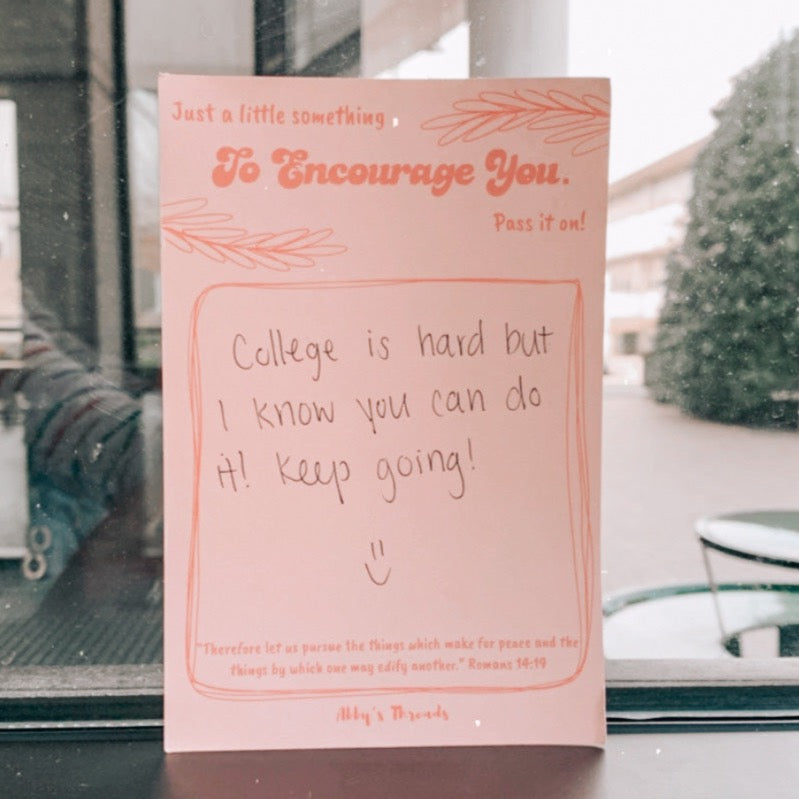 Just a little something
To Encourage You.
Pass it on!
College is hard but
I know you can do
it! Keep going!
"Therefore let us pursue the things which make for peace and the
things by which one may edify another." Romans 14:19
Abby's Threads